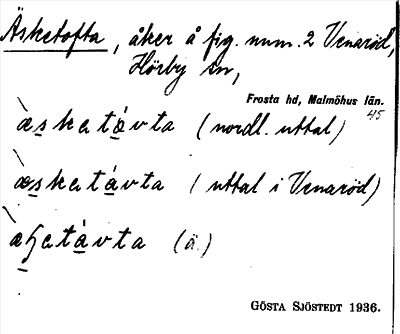 Äsketofta, åker å fig. num. 2 Venaröd,
Hörby sn,
Frosta hd, Malmöhus län.
45
`æsketávta (nordl. uttal)
`æsketávta (uttal i Venaröd)
(ä.)
GÖSTA SJÖSTEDT 1936.